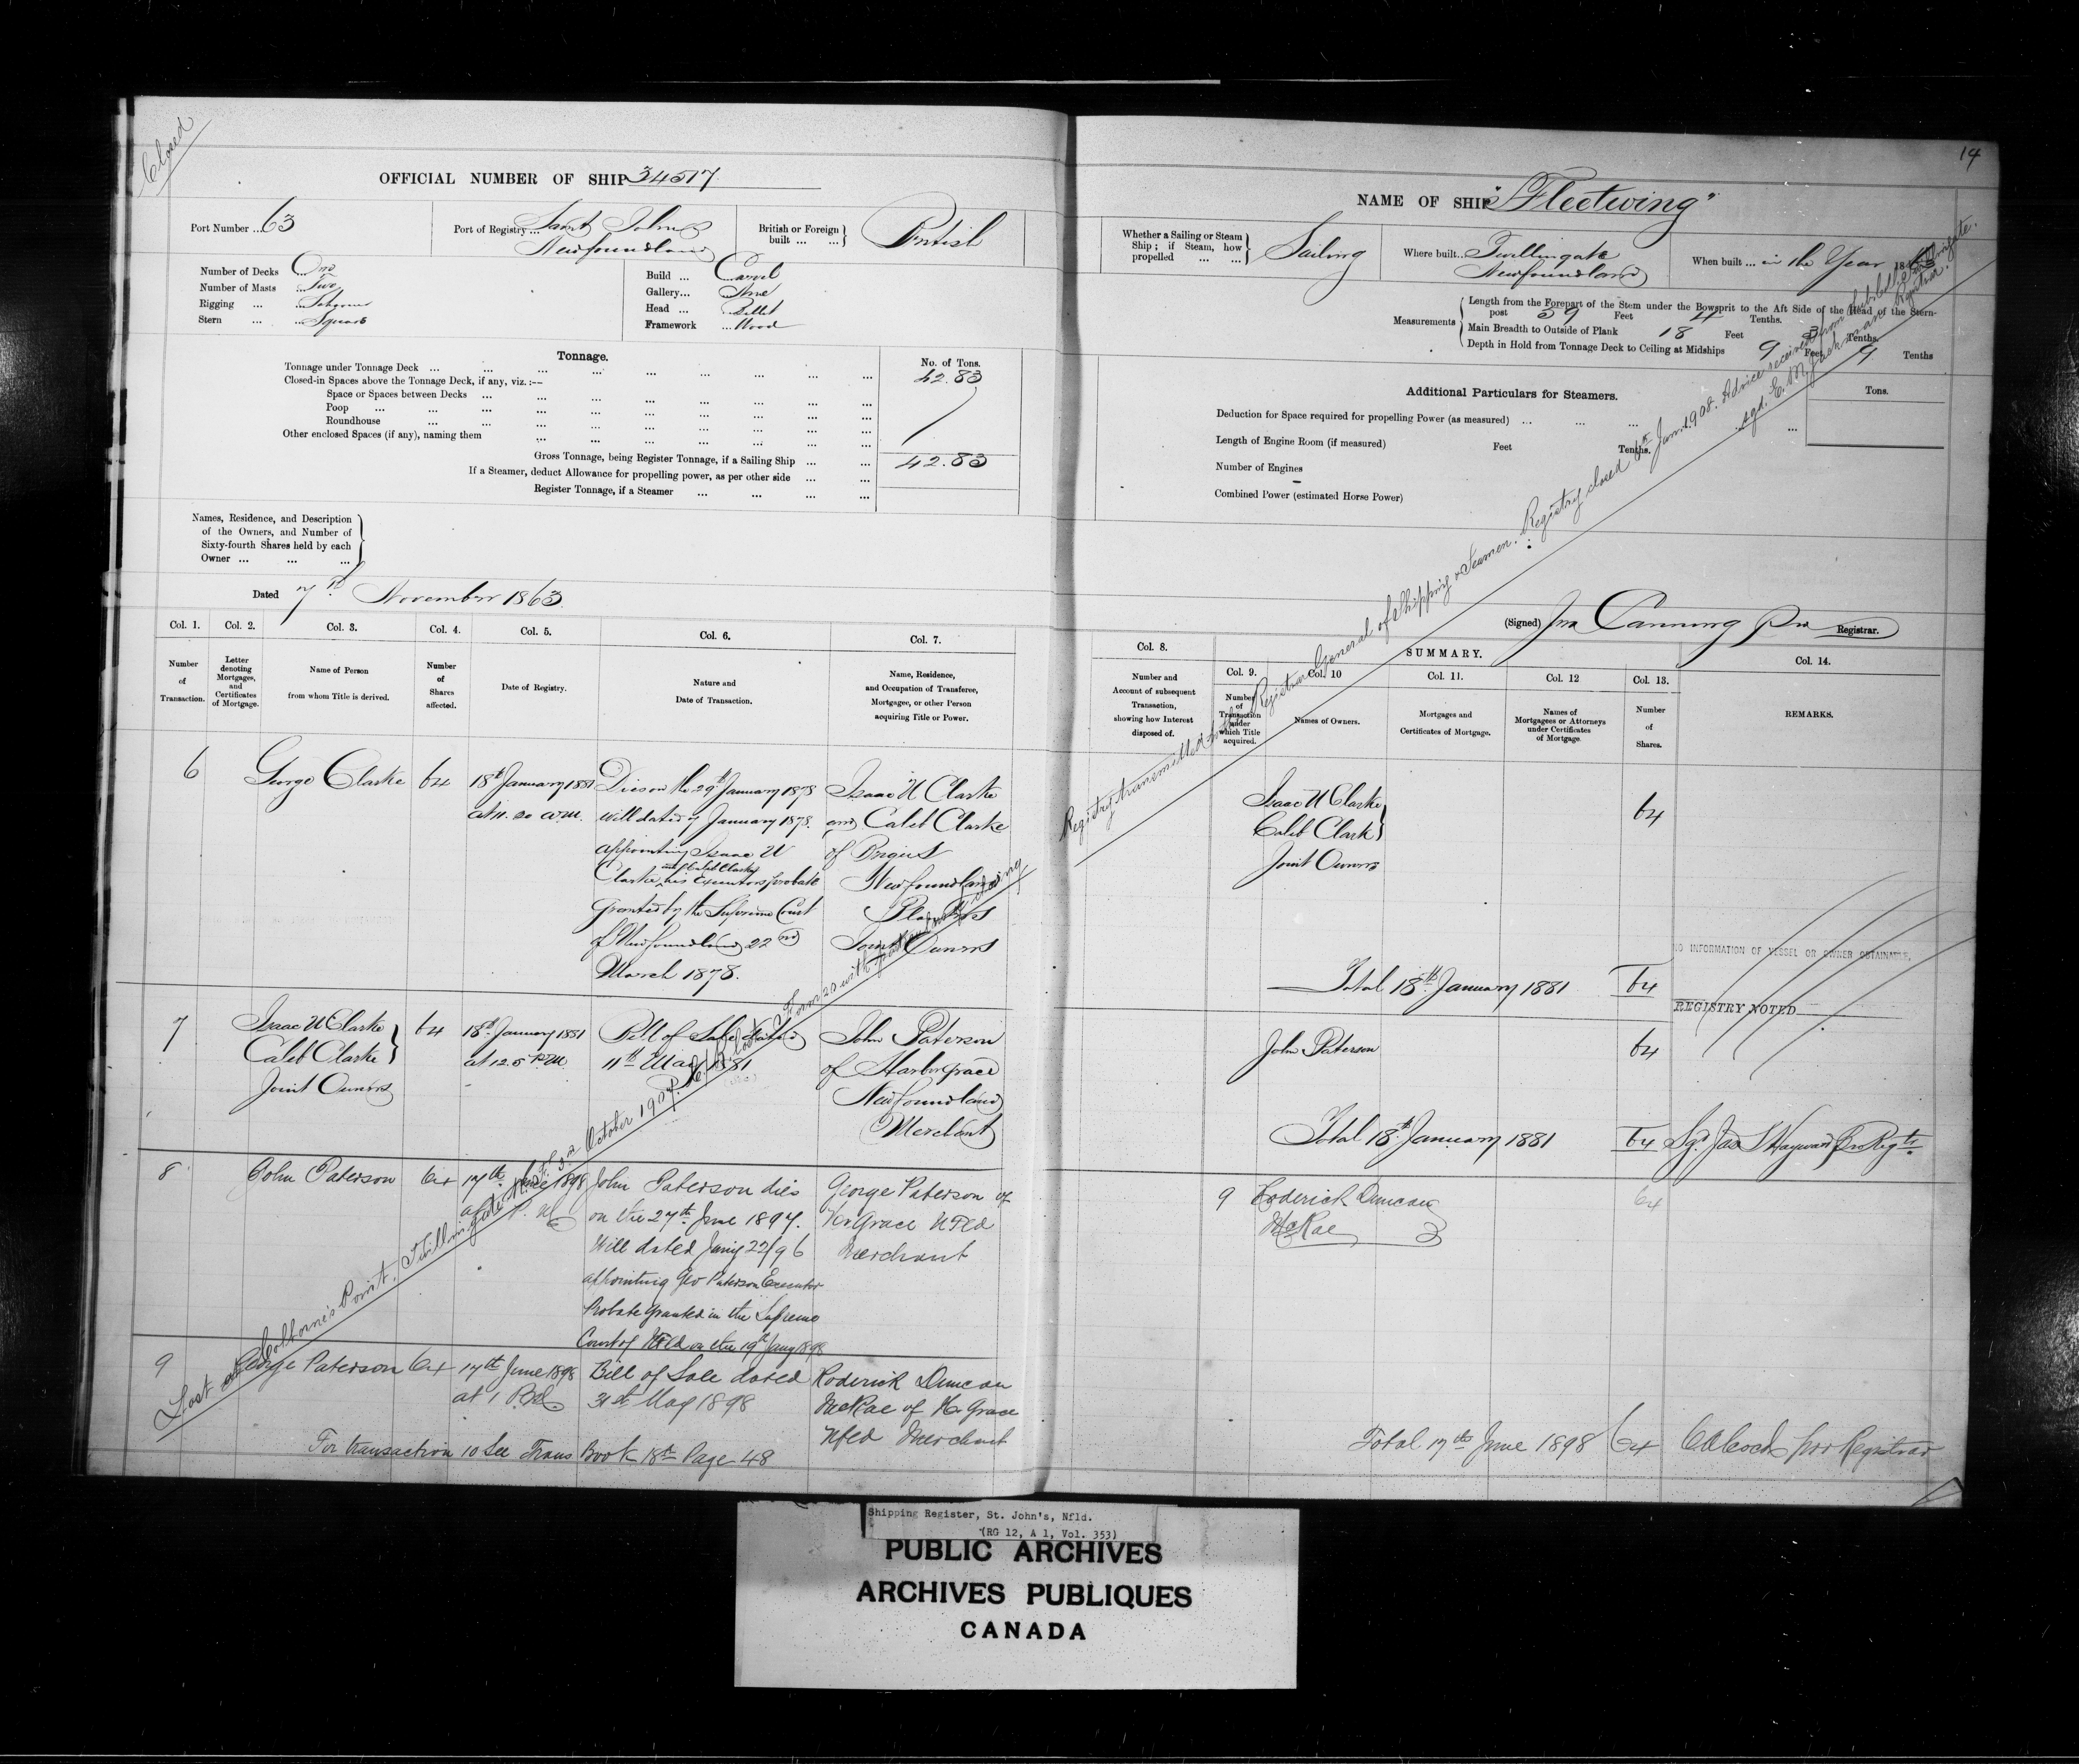 Closed
OFFICIAL NUMBER OF SHIP 34517
Port Number ... 63
Port of Registry ... Saint Johns
Newfoundland
British or Foreign
built ... ...
British
Number of Decks ... One
Number of Masts ... Two
Rigging ... ... Schooner
Stern ... ... Square
Build ... Carvel
Gallery ... None
Head ... Billet
Framework ... Wood
Tonnage.
No. of Tons.
Tonnage under Tonnage Deck ... 42.83
Closed-in Spaces above the Tonnage Deck, if any, viz.:—
Space or Spaces between Decks ...
Poop ...
Roundhouse ...
Other enclosed Spaces (if any), naming them
Gross Tonnage, being Register Tonnage, if a Sailing Ship ... 42.83
If a Steamer, deduct Allowance for propelling power, as per other side ...
Register Tonnage, if a Steamer ...
Names, Residence, and Description
of the Owners, and Number of
Sixty-fourth Shares held by each
Owner ... ... ...
Dated 7th November 1863
Col. 1. Col. 2. Col. 3. Col. 4. Col. 5. Col. 6. Col. 7.
Number
of
Transaction.
Letter
denoting
Mortgages,
and
Certificates
of Mortgage.
Name of Person
from whom Title is derived.
Number
of
Shares
affected.
Date of Registry.
Nature and
Date of Transaction.
Name, Residence,
and Occupation of Transferee,
Mortgagee, or other Person
acquiring Title or Power.
6
George Clarke
64
18th January 1881
at 11.20 A.M.
Dies on the 29th January 1878
will dated 7 January 1878.
appointing Isaac W
and Caleb Clarke
Clarke his Executors probate
granted by the Supreme Court
of Newfoundland 22nd
March 1878.
Isaac W Clarke
and Caleb Clarke
of Brigus
Newfoundland
Planters
Joint Owners
7
Isaac W Clarke
Caleb Clarke
Joint Owners
64
18th January 1881
at 12.5 P.M.
Bill of Sale dated
11th May 1881
John Paterson
of Harbor grace
Newfoundland
Merchant
8
John Paterson
64
17th June 1898
at P.M.
John Paterson dies
on the 27th June 1897.
Will dated Jany 22/96
appointing Geo Paterson Executor
Probate granted in the Supreme
Court of Nfld on the 19th Jany 1898
George Paterson of
Hr Grace Nfld
Merchant
9
George Paterson
64
17th June 1898
at 1 P.M.
Bill of Sale dated
31st May 1898
Roderick Duncan
McRae of Hr Grace
Nfld Merchant
For transaction 10 See Trans Book 18th Page 48
Lost at Colborne's Point, Twillingate, Nfld 2 October 1907.
14
NAME OF SHIP "Fleetwing"
Whether a Sailing or Steam
Ship; if Steam, how
propelled ... ...
Sailing
Where built ... Twillingate
Newfoundland
When built ... in the Year 1863
Measurements
Length from the Forepart of the Stem under the Bowsprit to the Aft Side of the Head of the Stern-
post 59 Feet 4 Tenths.
Main Breadth to Outside of Plank 18 Feet 3 Tenths.
Depth in Hold from Tonnage Deck to Ceiling at Midships 9 Feet 9 Tenths
Additional Particulars for Steamers.
Tons.
Deduction for Space required for propelling Power (as measured) ...
Length of Engine Room (if measured) Feet Tenths.
Number of Engines
Combined Power (estimated Horse Power)
(Signed) Jno Canning Pro Registrar.
Registry transmitted to the Registrar General of Shipping & Seamen. Registry closed 6th Jan. 1908. Advice received from Sub-Collector Twillingate.
sgd. E. M. Jackman Registrar.
Col. 8. SUMMARY. Col. 14.
Col. 9. Col. 10 Col. 11. Col. 12 Col. 13.
Number and
Account of subsequent
Transaction,
showing how Interest
disposed of.
Number
of
Transaction
under
which Title
acquired.
Names of Owners.
Mortgages and
Certificates of Mortgage.
Names of
Mortgagees or Attorneys
under Certificates
of Mortgage.
Number
of
Shares.
REMARKS.
Isaac W Clarke
Caleb Clark
Joint Owners
64
NO INFORMATION OF VESSEL OR OWNER OBTAINABLE.
Total 18th January 1881 64
REGISTRY NOTED
John Paterson 64
Total 18th January 1881 64 Sgd Jas S Hayward Pro Regtr
9 Roderick Duncan 64
McRae
Total 17th June 1898 64 pro Registrar
Shipping Register, St. John's, Nfld.
(RG 12, A 1, Vol. 353)
PUBLIC ARCHIVES
ARCHIVES PUBLIQUES
CANADA